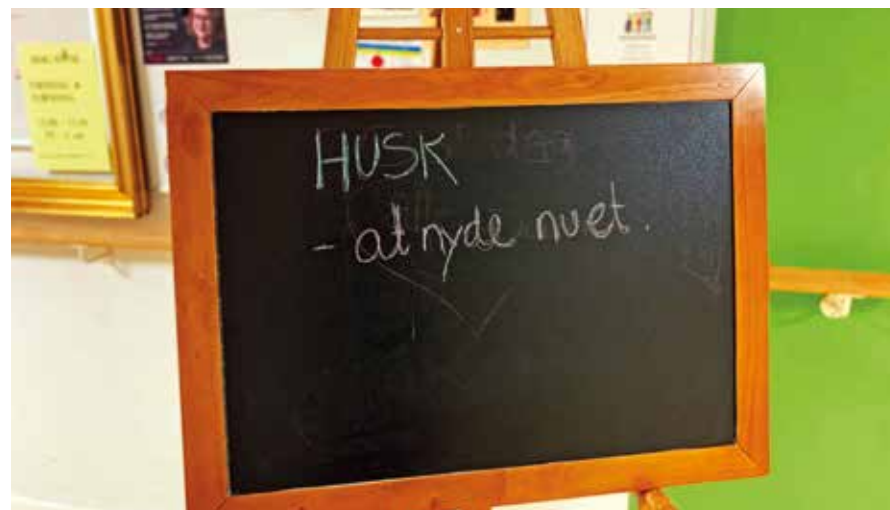 HUSK
- at nyde nuet.